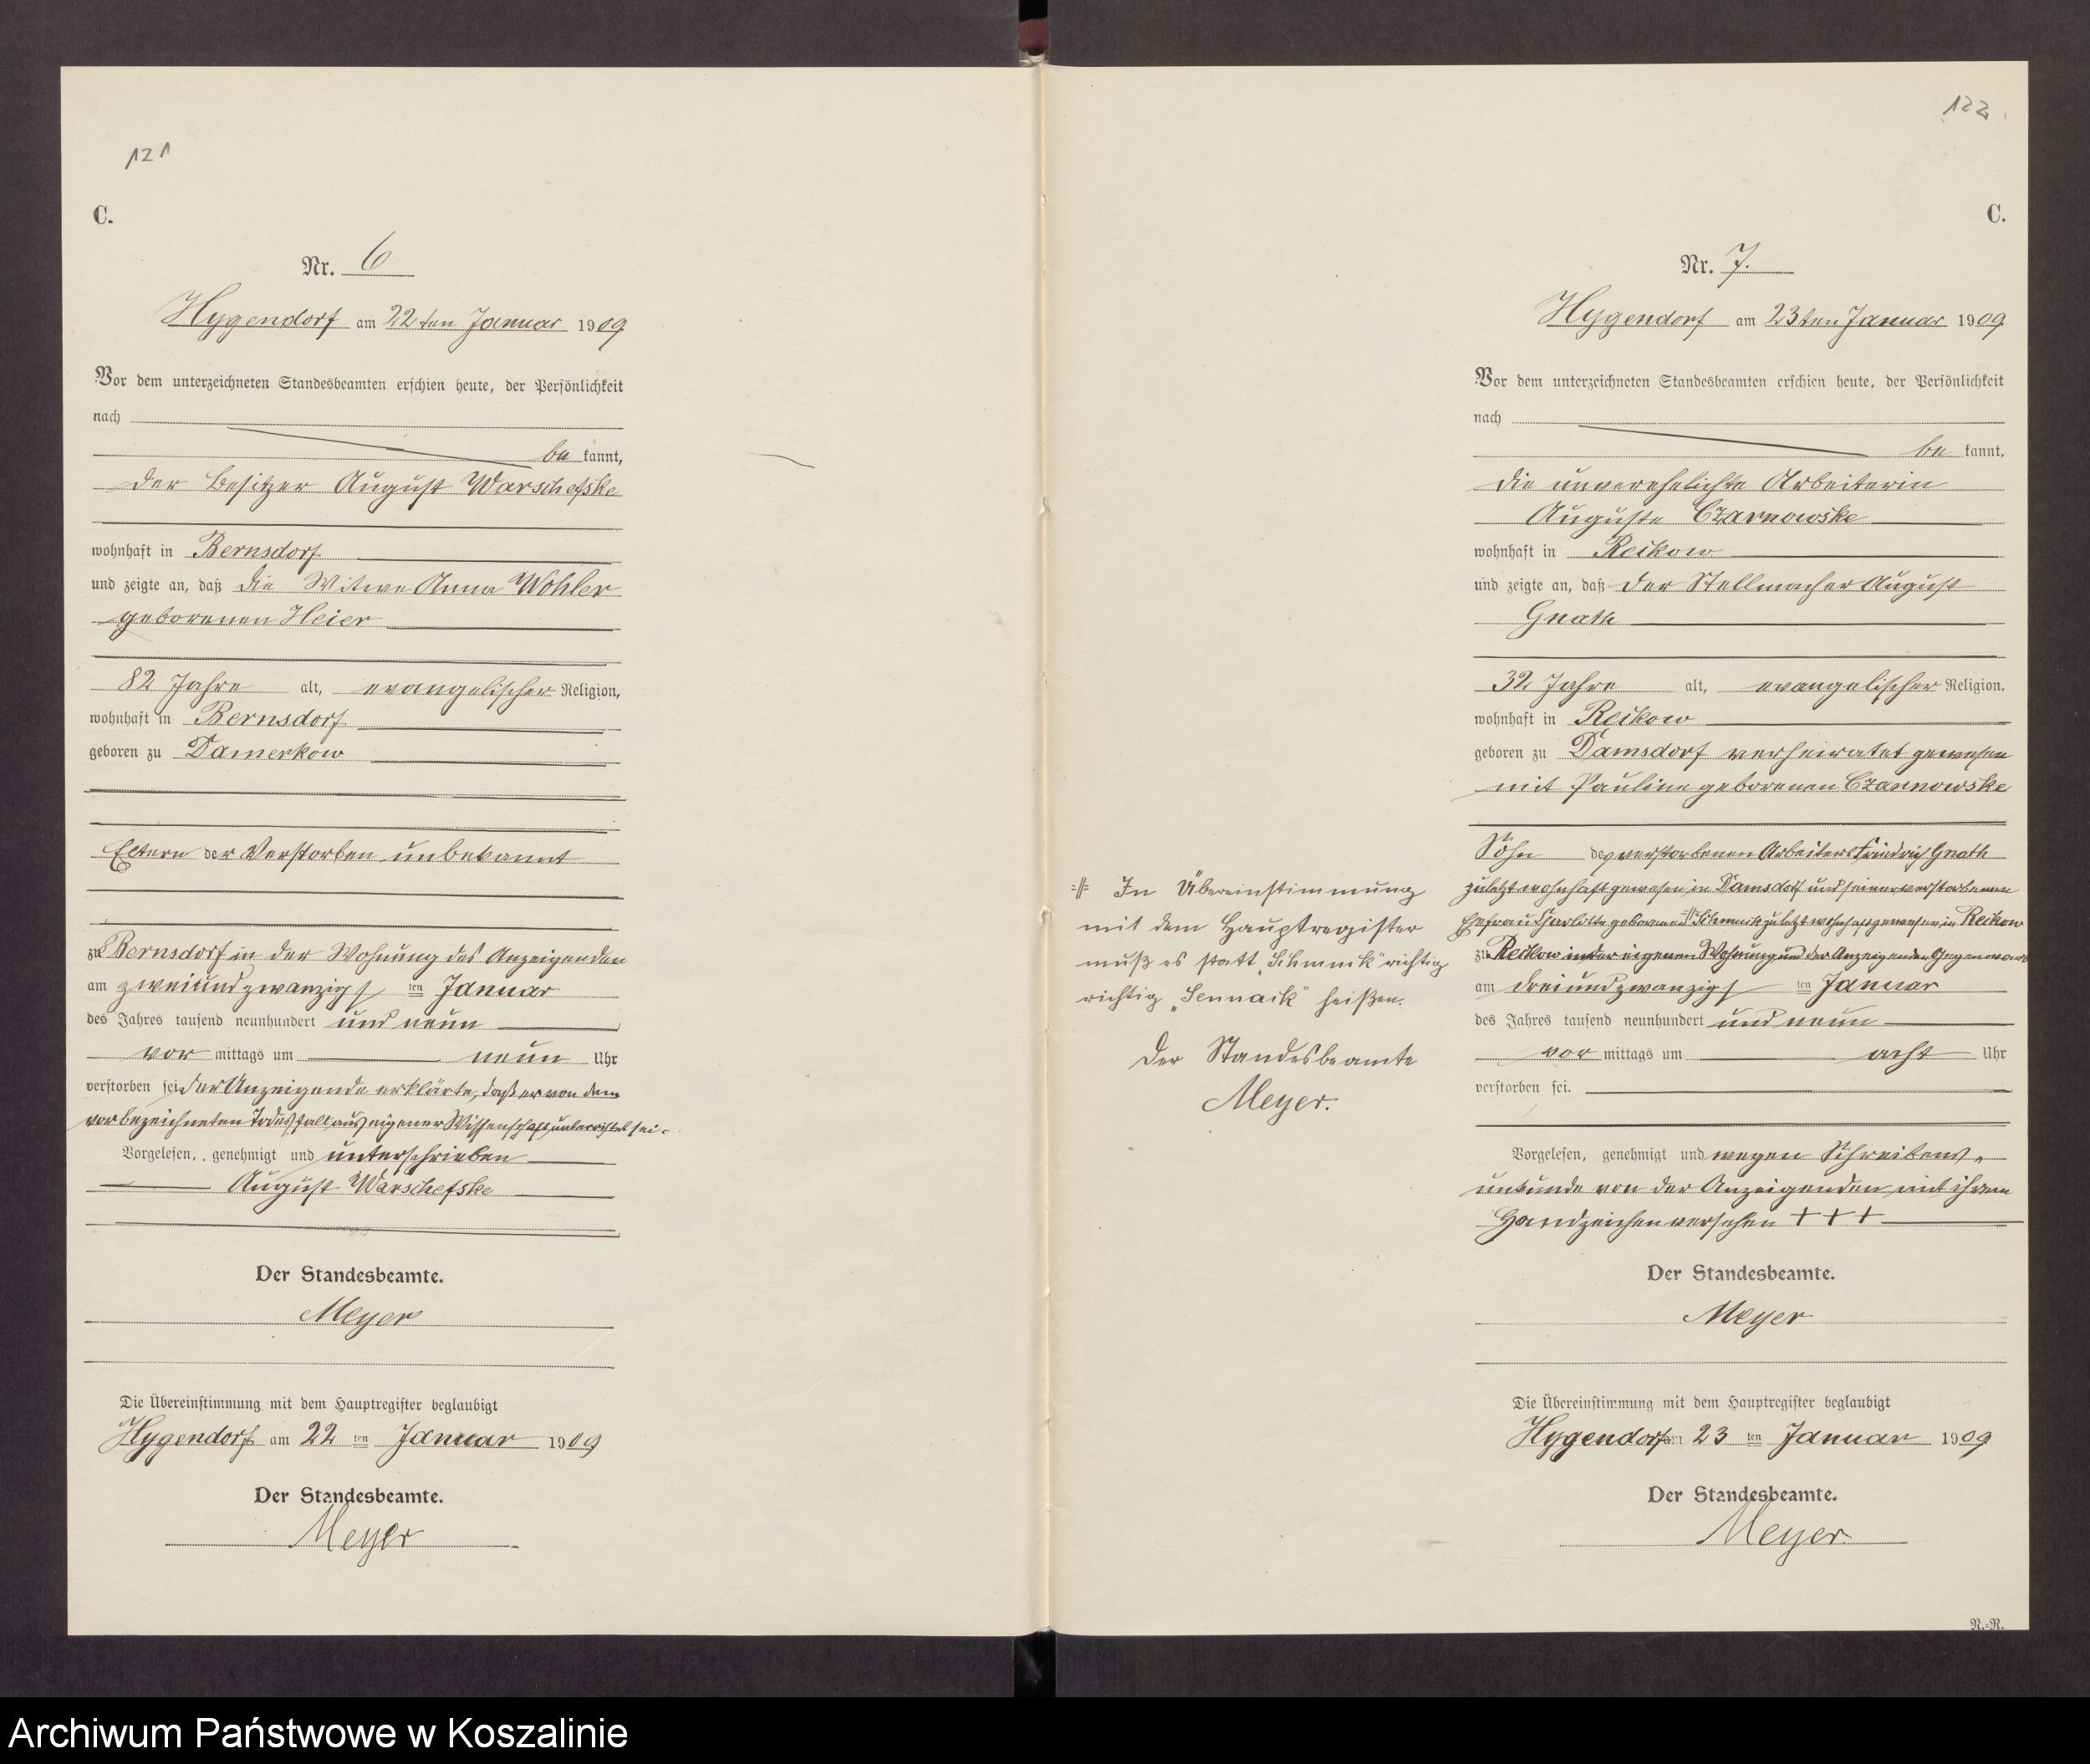 121
C.
Nr. 6
Hygendorf am 22ten Januar 1909
Vor dem unterzeichneten Standesbeamten erschien heute, der Persönlichkeit
nach
be kannt,
der Besitzer August Warschefske
wohnhaft in Bernsdorf
und zeigte an, daß die Witwe Anna Wohler
geborenen Heier
82 Jahre alt, evangelischer Religion,
wohnhaft in Bernsdorf
geboren zu Damerkow
Eltern der Verstorben unbekannt
zu Bernsdorf in der Wohnung des Anzeigenden
am zweiundzwanzigs ten Januar
des Jahres tausend neunhundert und neun
vor mittags um neun Uhr
verstorben sei der Anzeigende erklärte, daß er von dem
vorbezeichneten Todesfall aus eigener Wissenschaft unterrichtet sei.
Vorgelesen, genehmigt und unterschrieben
August Warschefske
Der Standesbeamte.
Meyer
Die Übereinstimmung mit dem Hauptregister beglaubigt
Hygendorf am 22 ten Januar 1909
Der Standesbeamte.
Meyer
122
C.
Nr. 7.
Hygendorf am 23ten Januar 1909
Vor dem unterzeichneten Standesbeamten erschien heute, der Persönlichkeit
nach
be kannt,
die unverehelichte Arbeiterin
Auguste Czarnowske
wohnhaft in Reikow
und zeigte an, daß der Stellmacher August
Gnath
32 Jahre alt, evangelischer Religion.
wohnhaft in Reikow
geboren zu Damsdorf verheiratet gewesen
mit Pauline geborenen Czarnowske
Sohn des verstorbenen Arbeiters Friedrich Gnath
zuletzt wohnhaft gewesen in Damsdorf und seiner verstorbenen
Ehefrau Charlotte geborenen Schmnik zuletzt wohnhaft gewesen in Reikow
zu Reikow in der eigenen Wohnung und der Anzeigenden Gegenwart
am dreiundzwanzigs ten Januar
des Jahres tausend neunhundert und neun
vor mittags um acht Uhr
verstorben sei.
Vorgelesen, genehmigt und wegen Schreibens-
unkunde von der Anzeigenden mit ihrem
Handzeichen versehen +++
Der Standesbeamte.
Meyer
Die Übereinstimmung mit dem Hauptregister beglaubigt
Hygendorf am 23 ten Januar 1909
Der Standesbeamte.
Meyer.
N.-R.
In Übereinstimmung
mit dem Hauptregister
muß es statt „Schmnik" richtig
richtig „Sennaik" heißen.
Der Standesbeamte
Meyer.
Archiwum Państwowe w Koszalinie